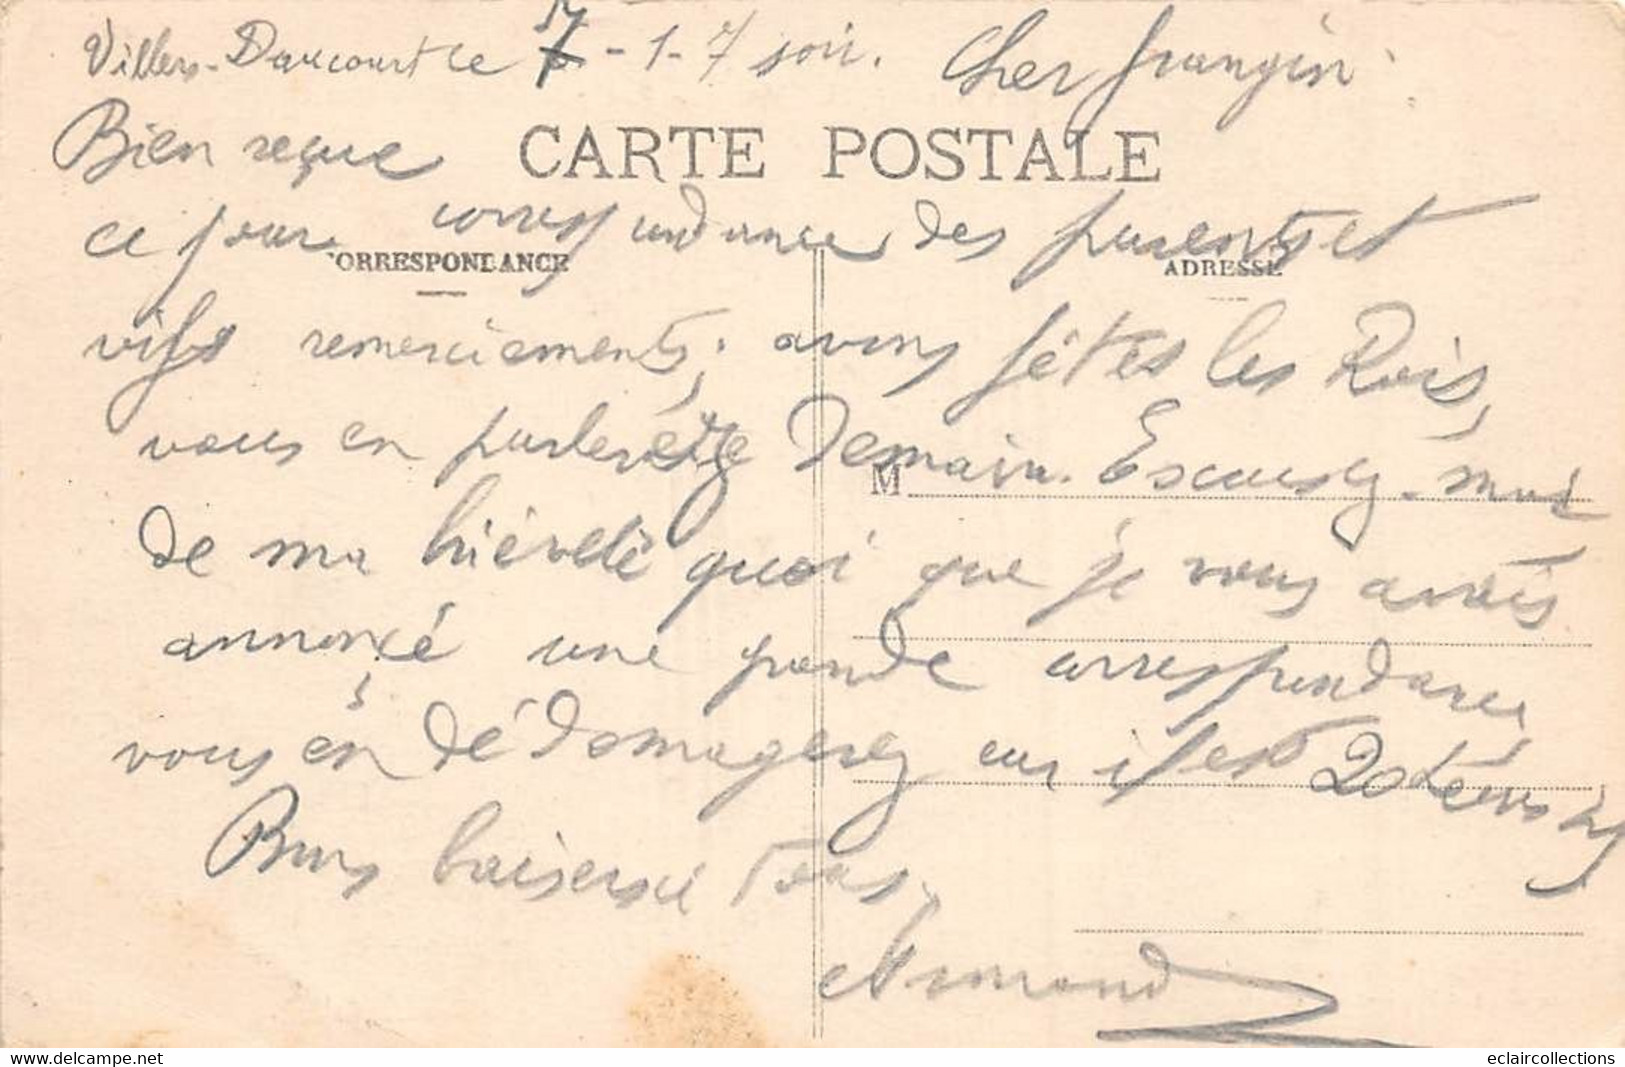 Villers-Daucourt le 7-1-7 soir. Cher frangin.
CARTE POSTALE
Bien reçue
ce jour correspondance des parents et
CORRESPONDANCE
ADRESSE
vifs remerciements; avons fêtés les Rois,
vous en parlerai demain. Excusez-moi
M
de ma brièveté quoi que je vous avais
annoncé une grande correspondance,
vous en dédomagerez car il est 20h
Bons baisers à tous.
Armand
eclaircollections